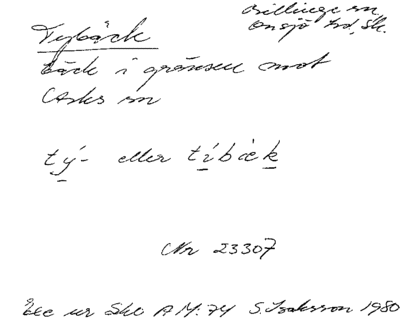 Billinge sn
Onsjö hd, Sk.
Tybäck
bäck i gränsen mot
Asks sn
tý- eller tíbäck
Nr 23307
Exc ur Skb A M:74 S. Isaksson 1980